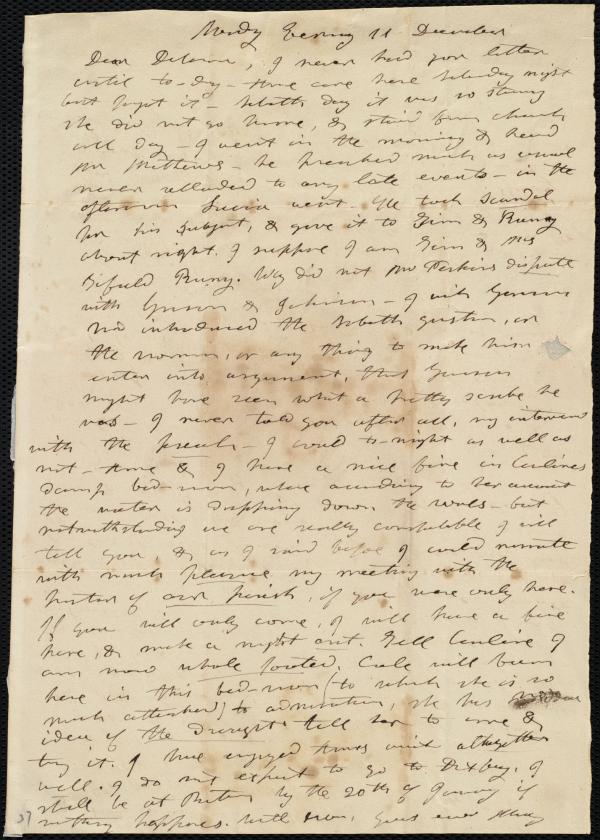 Mondy Evening 11 December
Dear Deborah, I never had your letter
until to-day - Anne came here Saturday night
but forgot it - Sabbath day it was so stormy
she did not go home, & staid from church
all day - I went in the morning & heard
Mr Mathews - he preached much as usual
never alluded to any late events - in the
afternoon Lucia went. He took Scandal
for his subject, & gave it to Gim &
about right. I suppose I am Gim & Mrs
. Why did not Mr Perkins dispute
with Garrison & Johnson - I wish Garrison
had introduced the Sabbath question, or
the woman, or any thing to make him
enter into argument, that Garrison
might have seen what a pretty scribe he
was - I never told you after all, my interview
with the preacher - I could to-night as well as
not - Anne & I have a nice fire in Carlines
damp bed-room, where according to her account
the water is dripping down the walls - but
notwithstanding we are really comfortable I will
tell you, & as I said before I could narrate
with much pleasure my meeting with the
pastor of our parish, if you were only here.
If you will only come, I will have a fire
here, & make a night out. Tell Caroline I
am now whole footed. Cale will burn
here in this bed-room (to which she is so
much attached) to admiration, she has
idea of the draught tell her to come &
try it. I have enjoyed Annes visit altogether
well. I do not expect to go to Duxbury. I
shall be at by the 20th of January if
nothing happens. Well now, yours ever Mary
37